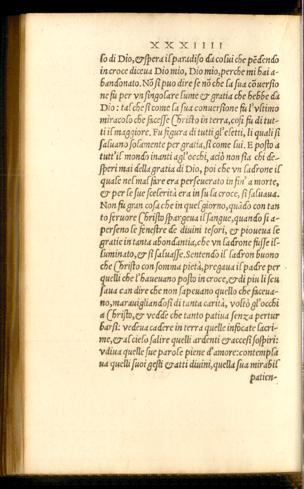 XXXIIII
so di Dio, & spera il paradiso da colui che pēdendo
in croce diceua Dio mio, Dio mio, perche mi hai a-
bandonato. Nō si puo dire se nō che la sua cōuersio
ne fù per vn singolare lume & gratia che hebbe da
Dio: tal che si come la sua conuersione fù l'vltimo
miracolo che facesse Christo in terra, cosi fù di tut-
ti il maggiore. Fu figura di tutti gl'eletti, li quali si
saluano solamente per gratia, si come lui. E posto a
tutt'il mondo inanti agl'occhi, aciò non sia chi de-
speri mai della gratia di Dio, poi che vn ladrone il
quale nel mal fare era perseuerato in fin' a morte,
& per le sue sceleritâ era in su la croce, si saluaua.
Non fu gran cosa che in quel giorno, quādo con tan
to feruore Christo spargeua il sangue, quando si a-
perseno le fenestre de diuini tesori, & pioueua le
gratie in tanta abondantia, che vn ladrone fusse il-
luminato, & si saluasse. Sentendo il ladron buono
che Christo con somma pietà, pregaua il padre per
quelli che l'haueuano posto in croce, & di piu li scu
saua can dire che non sapeuano quello che faceua-
no, marauigliandosi di tanta carità, voltò gl'occhi
a Christo, & vedde che tanto patiua senza pertur
barsi: vedeua cadere in terra quelle infocate lacri-
me, & al cielo salire quelli ardenti & accesi sospiri:
vdiua quelle sue parole piene d'amore: contempla
ua quelli suoi gesti & atti diuini, quella sua mirabil
patien-